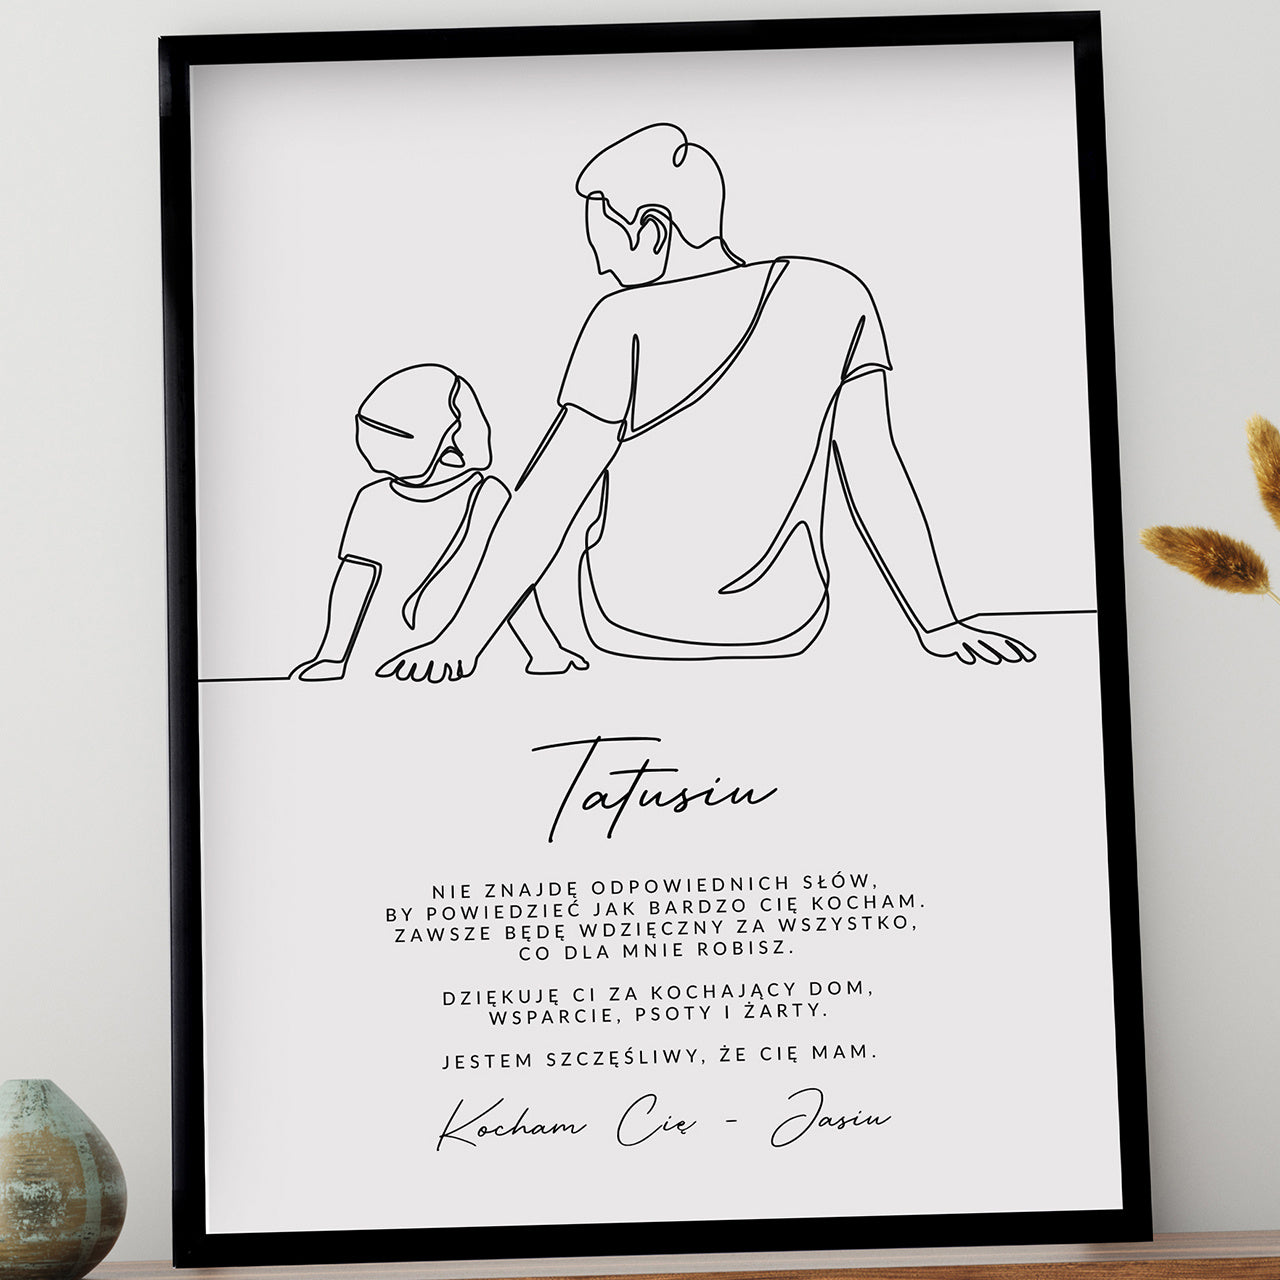 Tatusiu
NIE ZNAJDĘ ODPOWIEDNICH SŁÓW,
BY POWIEDZIEĆ JAK BARDZO CIĘ KOCHAM.
ZAWSZE BĘDĘ WDZIĘCZNY ZA WSZYSTKO,
CO DLA MNIE ROBISZ.
DZIĘKUJĘ CI ZA KOCHAJĄCY DOM,
WSPARCIE, PSOTY I ŻARTY.
JESTEM SZCZĘŚLIWY, ŻE CIĘ MAM.
Kocham Cię - Jasiu